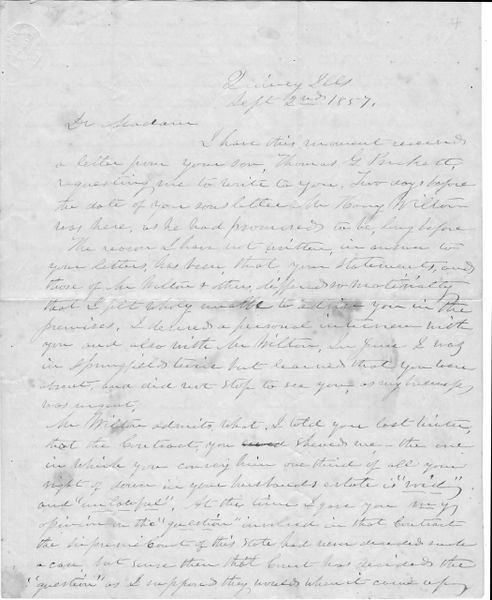 Quincy Ills
Sept 2nd 1857.
Dr Madam
I have this moment received
a letter from your son, Thomas G
requesting me to write to you. Two days before
the date of your son's letter Mr Harry Wilton
was here, as he had promised to be, long before
The reason I have not written, in answer to
your letters, has been, that your statements, and
those of Mr Wilton & others, differed so materially
that I felt wholy unable to advise you in the
premises. I desired a personal interview with
you and also with Mr Wilton, In June I was
in Springfield twice but learned that you were
absent, and did not stop to see you, as my business
was urgent.
Mr Wilton admits what I told you last winter,
that the Contract, you showed me - the one
in which you convey him one third of all your
right of dower in your husbands estate is "void"
and "unlawful". At the time I gave you my
opinion in the "question" involved in that Contract
the Supreme Court of this State had never decided such
a case, but since then that Court has decided the
"question" as I supposed they would when it came up